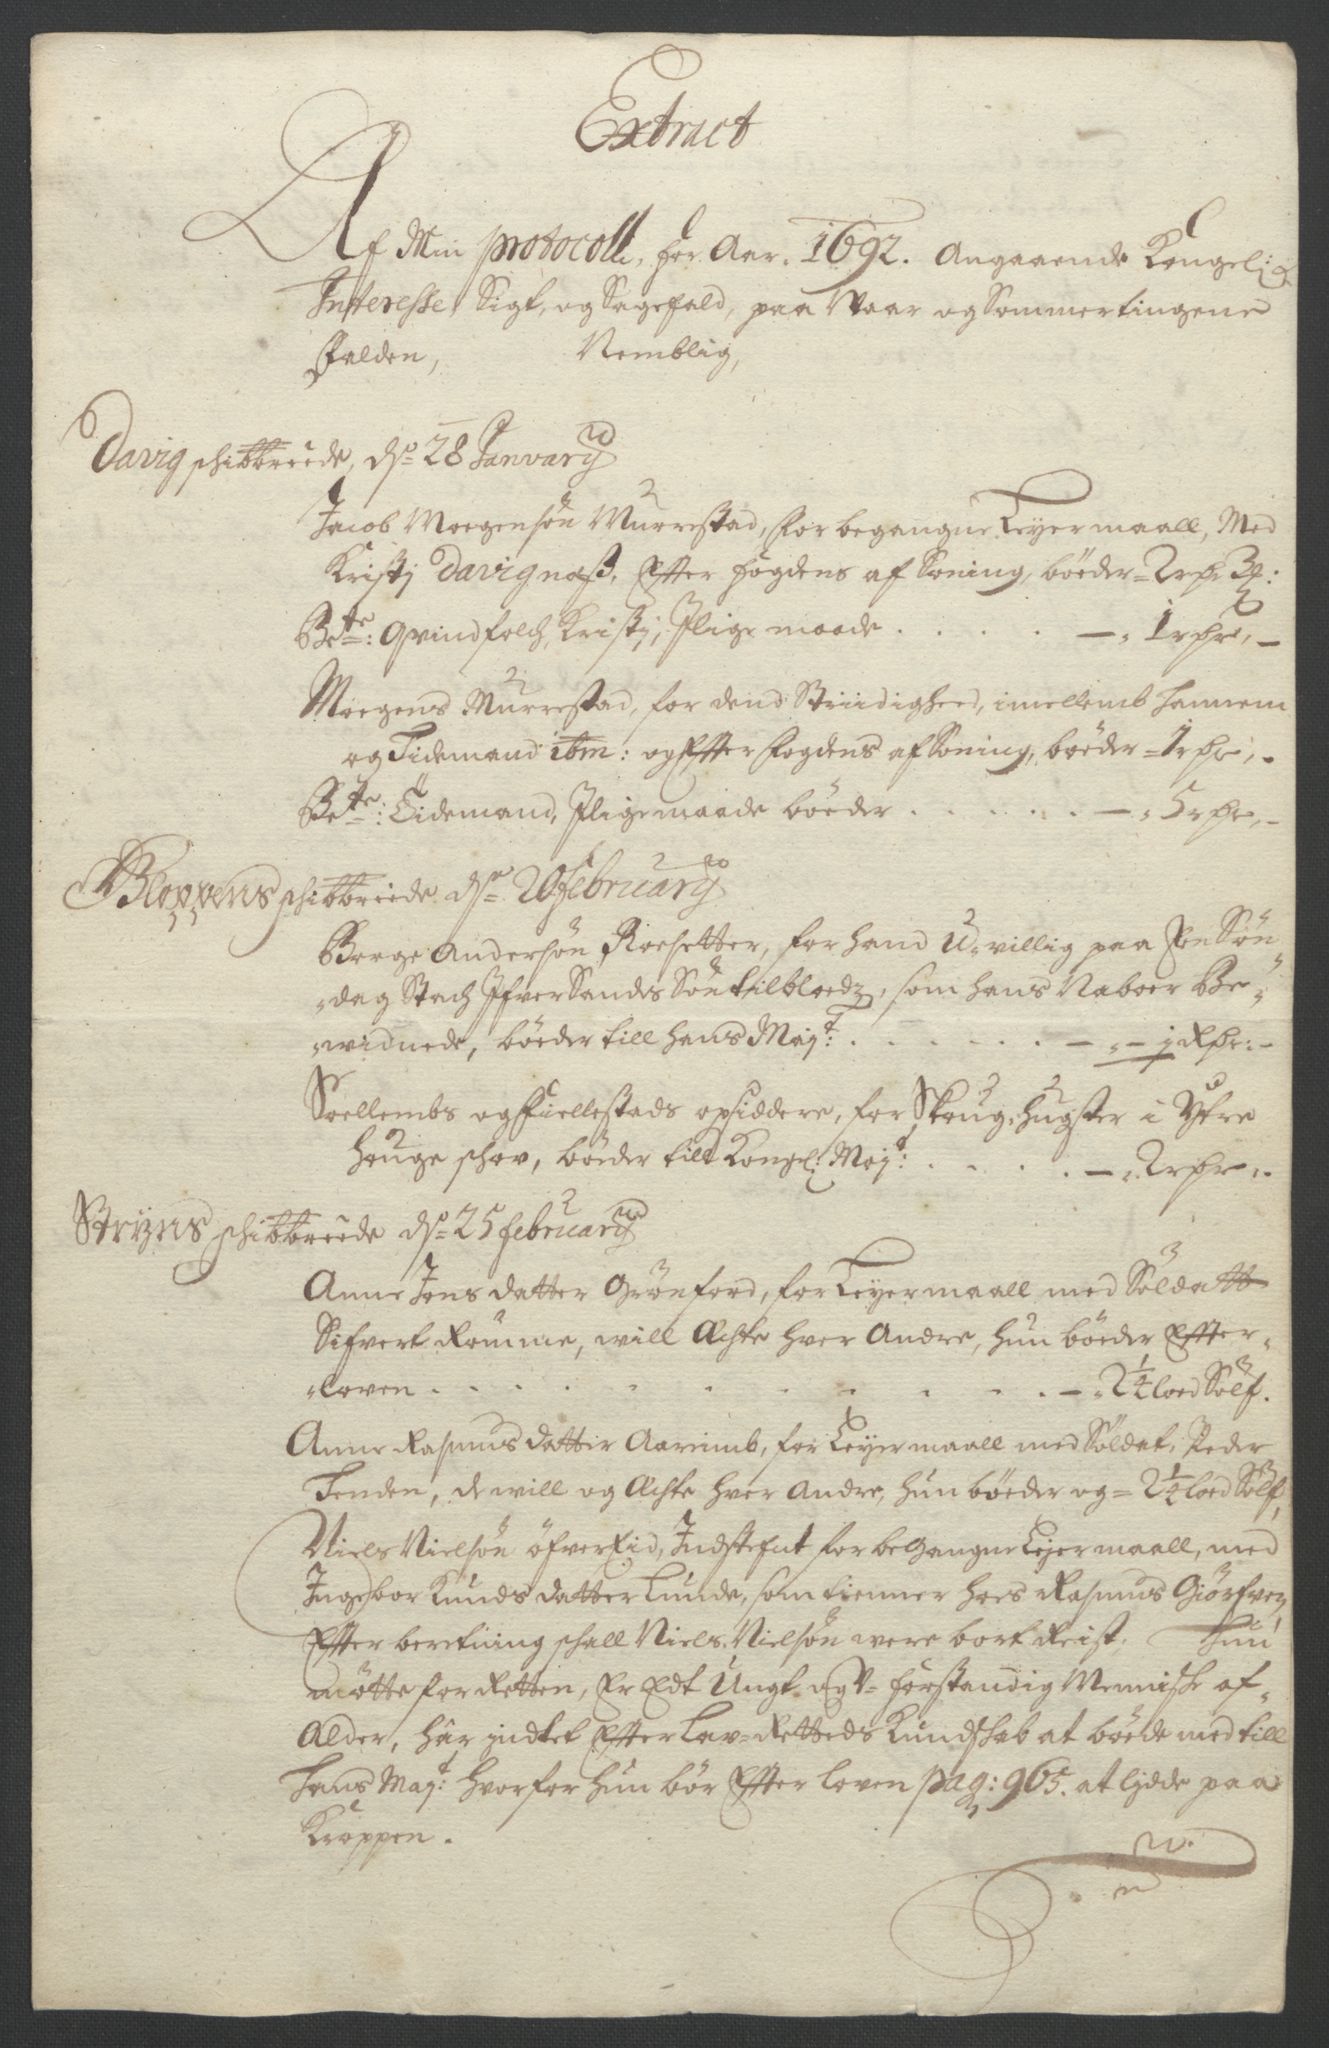 Extract
Af Min protocoll, for Aar. 1692. Angaaende Kongel:
Interesse, Sigt, og Sagefald, paa Vaar og Sommertingene
falden, Nemblig,
Davig schibbrede, dn 28 January
Jacob Moegensøn Murrestad, for begangne Leyermaall, Med
Kristj Davignæss, Efter fogdens afSoning, bøeder=2rdr
Bete: Qvindfolch, Kristj, Jlige maade . . . . . — 1rdr, –
Moegens Murrestad, for dend Striidigheed, imellemb hannem
og Tidemand ibm: og Efter fogdens afSoning, bøeder=1rdr, –
Bete: Tidemand, Jligemaade bøeder . . . . . — 5rdr, –
Gloppens schibbrede dn 20 february
Børge Andersøn Roesetter, for hand U-villig paa En Søn
-dag Stach JfverSands Søn till bloedz, som hans Naboer Be-
-widnede, bøeder till hans Mayt: . . . . . — 1 Rdr: –
Soellembs og Fiellestads opsiddere, for Skoug-hugster i Ytre
Houge schov, bøeder till Kongel: Mayt: . . . . . — 2rdr, –
Stryens schibbrede dn 25 february
Anne Jens datter Grønford, for Leyermaall med Soldatt
Sifvert Romme, will Æchte hver Andre, hun bøeder Effter-
-loven . . . . . . . . . . — 2 1/4 loed Sølf.
Anne Rasmus datter Aarimb, for Leyermaall med Soldat, Peder
Tenden, de will og Æchte hver Andre, hun bøeder og= 2 1/4 loed Sølf,
Niels Nielsøn øfverEid, Jndstefnt for beGangne Leyermaall, med
Jngebor Knuds datter Lunde, som tienner hoes Rasmus Giørfven,
Efter beretning schall Niels Nielsøn were bort Reist, Hun
møtte for Retten, Er Edt Ungt og V-forstandig Menniske af-
Alder, har jndtet Efter Lav-Retteds Kundskab at bøede med till
Hans Mayt: hvorfor hun bør Efter loven pag: 965. at lidde paa
Kroppen.